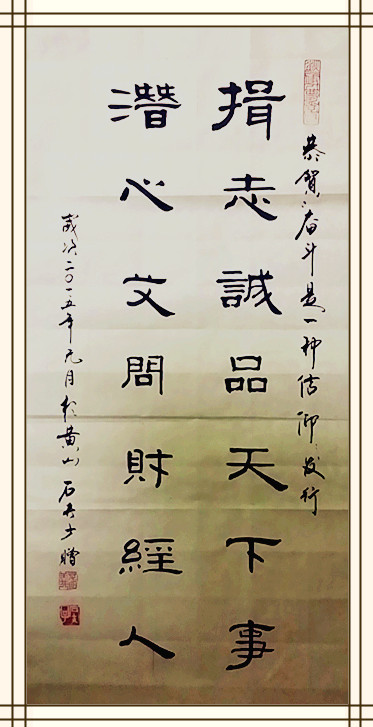 恭賀:奋斗是一种信仰:发行
揖志誠品天下事
潜心文問財經人
歲次二〇一五年元月於黄山 石 少贈